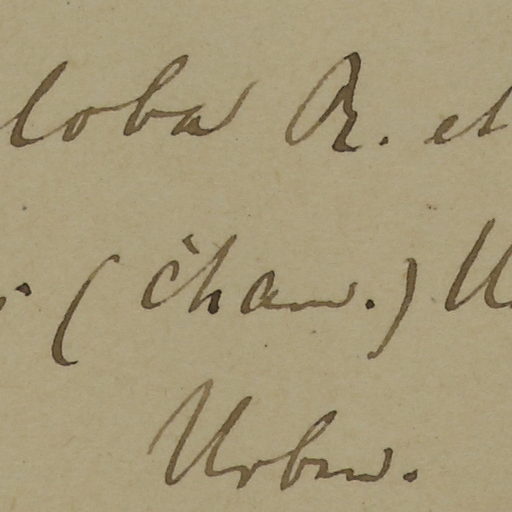 loba R. et
(Cham.) U
Urban.